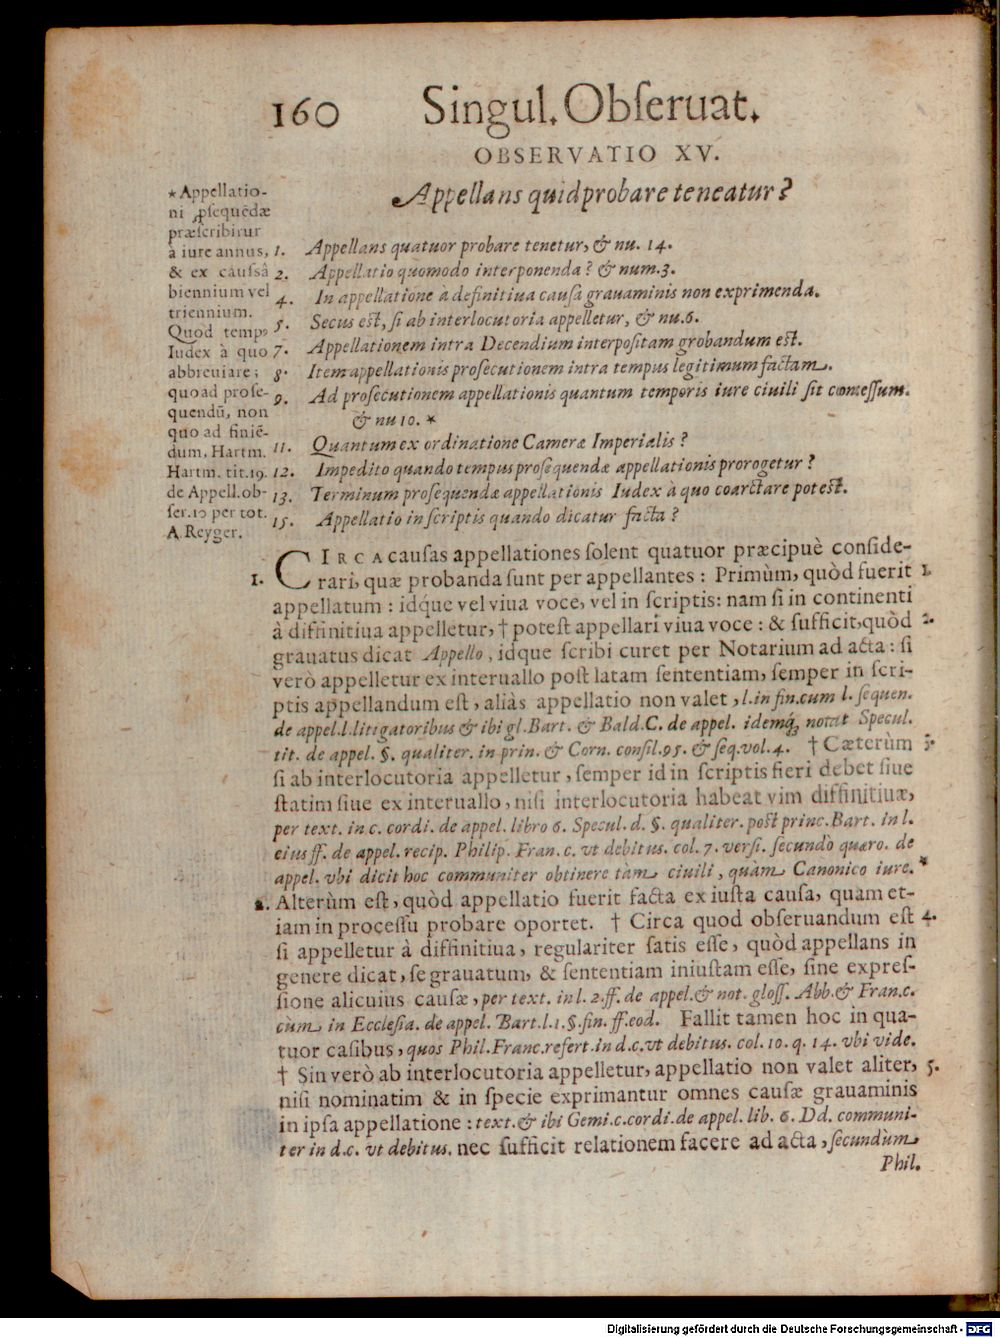 160 Singul. Obſeruat.
OBSERVATIO XV.
Appellans quid probare teneatur?
* Appellatio-
ni ꝓſequēdæ
præſcribitur
à iure annus,
& ex cauſsâ
biennium vel
triennium.
Quod tempꝰ
Iudex à quo
abbreuiare;
quoad proſe-
quendū, non
quo ad finiē-
dum, Hartm.
Hartm. tit. 19.
de Appell. ob-
ſer. 10 per tot.
A. Reyger.
1. Appellans quatuor probare tenetur, & nu. 14.
2. Appellatio quomodo interponenda? & num. 3.
4. In appellatione à definitiua cauſa grauaminis non exprimenda.
5. Secus eſt, ſi ab interlocutoria appelletur, & nu. 6.
7. Appellationem intra Decendium interpoſitam grobandum eſt.
8. Item appellationis proſecutionem intra tempus legitimum factam.
9. Ad proſecutionem appellationis quantum temporis iure ciuili ſit conceſſum.
& nu 10. *
11. Quantum ex ordinatione Cameræ Imperialis?
12. Impedito quando tempus proſequendæ appellationis prorogetur?
13. Terminum proſequendæ appellationis Iudex à quo coarctare poteſt.
15. Appellatio in ſcriptis quando dicatur facta?
CIRCA cauſas appellationes ſolent quatuor præcipuè conſide-
1. rari, quæ probanda ſunt per appellantes: Primùm, quòd fuerit 1.
appellatum: idque vel viua voce, vel in ſcriptis: nam ſi in continenti
à diffinitiua appelletur, † poteſt appellari viua voce: & ſufficit, quòd 2.
grauatus dicat Appello, idque ſcribi curet per Notarium ad acta: ſi
verò appelletur ex interuallo poſt latam ſententiam, ſemper in ſcri-
ptis appellandum eſt, aliàs appellatio non valet, l. in fin. cum l. ſequen.
de appel. l. litigatoribus & ibi gl. Bart. & Bald. C. de appel. idemq́ꝫ notat Specul.
tit. de appel. §. qualiter. in prin. & Corn. conſil. 95. & ſeq. vol. 4. † Cæterùm 3.
ſi ab interlocutoria appelletur, ſemper id in ſcriptis fieri debet ſiue
ſtatim ſiue ex interuallo, niſi interlocutoria habeat vim diffinitiuæ,
per text. in c. cordi. de appel. libro 6. Specul. d. §. qualiter. poſt princ. Bart. in l.
eius ff. de appel. recip. Philip. Fran. c. vt debitus. col. 7. verſi. ſecundò quæro. de
appel. vbi dicit hoc communiter obtinere tàm ciuili, quàm Canonico iure. *
2. Alterùm eſt, quòd appellatio fuerit facta ex iuſta cauſa, quam et-
iam in proceſſu probare oportet. † Circa quod obſeruandum eſt 4.
ſi appelletur à diffinitiua, regulariter ſatis eſſe, quòd appellans in
genere dicat, ſe grauatum, & ſententiam iniuſtam eſſe, ſine expreſ-
ſione alicuius cauſæ, per text. in l. 2. ff. de appel. & not. gloſſ. Abb. & Fran. c.
cùm in Eccleſia. de appel. Bart. l. 1. §. fin. ff. eod. Fallit tamen hoc in qua-
tuor caſibus, quos Phil. Franc. refert. in d. c. vt debitus. col. 10. q. 14. vbi vide.
† Sin verò ab interlocutoria appelletur, appellatio non valet aliter, 5.
niſi nominatim & in ſpecie exprimantur omnes cauſæ grauaminis
in ipſa appellatione: text. & ibi Gemi. c. cordi. de appel. lib. 6. Dd. communi-
ter in d. c. vt debitus. nec ſufficit relationem facere ad acta, ſecundùm
Phil.
Digitalisierung gefördert durch die Deutsche Forschungsgemeinschaft - DFG